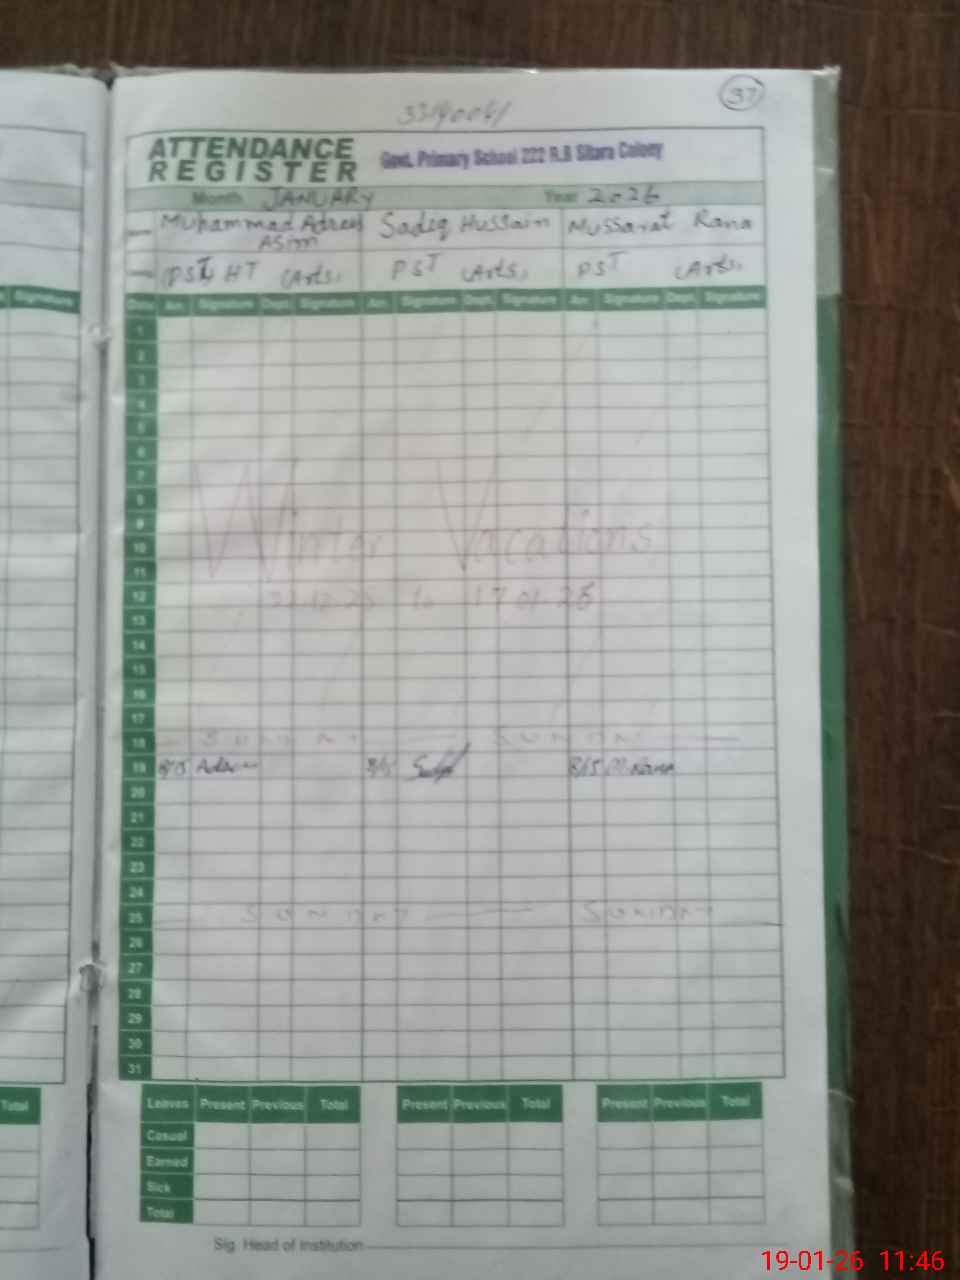 37
33190041
ATTENDANCE REGISTER
Govt. Primary School 222 R.B Sitara Colony
Month JANUARY Year 2026
Name Muhammad Adrees Asim Sadeq Hussain Mussarat Rana
PST HT (Arts) PST (Arts) PST (Arts)
Signature
Date Arr. Signature Dept. Signature Arr. Signature Dept. Signature Arr. Signature Dept. Signature
1
2
3
4
5
6
7
8
9
Winter Vacations
10
11
12
to 17 01 26
13
14
15
16
17
18 SUNDAY SUNDAY
19 8/15 8/15 8/15 M. Rana
20
21
22
23
24
25 SUNDAY SUNDAY
26
27
28
29
30
31
Total
Leaves Present Previous Total Present Previous Total Present Previous Total
Casual
Earned
Sick
Total
Sig. Head of Institution
19-01-26 11:46